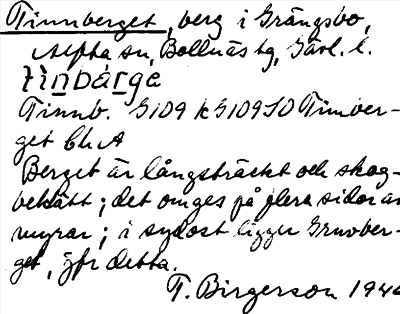 Tinnberget, berg i Grängsbo,
Alfta sn, Bollnäs tg, Gävl. l.
tìnbárga
Tinnb. G109 k G109 SO Timber-
get Ch A
Berget är långsträckt och skog-
beklätt; det omges på flera sidor av
myrar; i sydost ligger Gruvber-
get, jfr detta.
T. Birgerson 1946